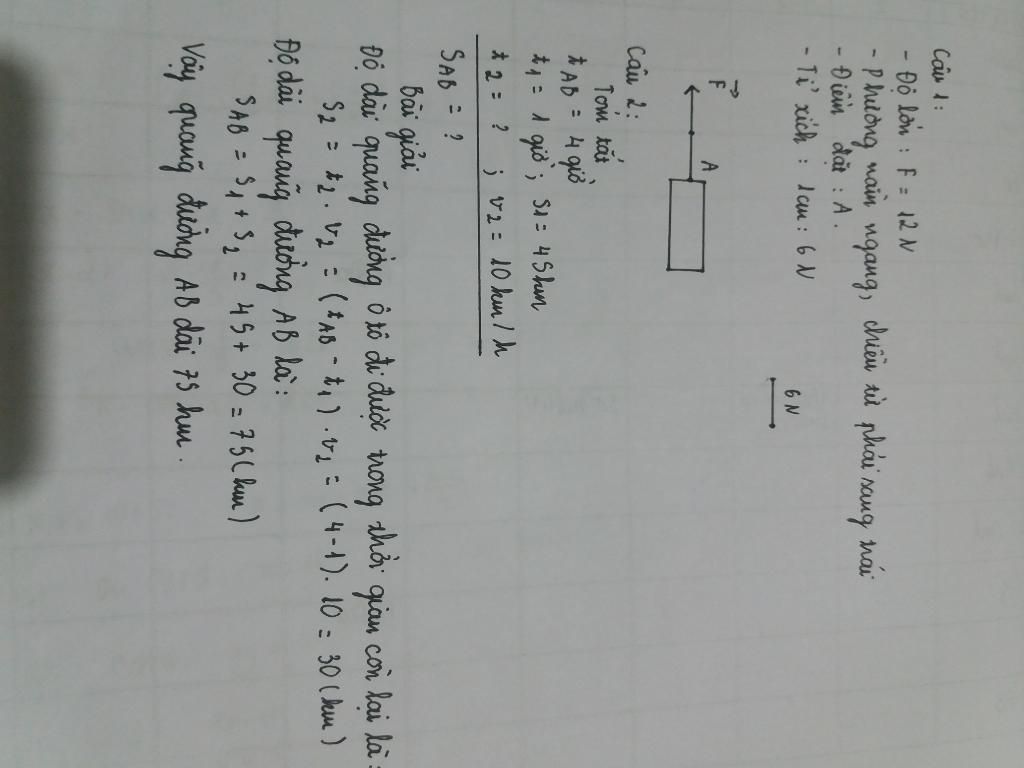 Câu 1:
- Độ lớn : F = 12 N
- Phương nằm ngang, chiều từ phải sang trái
- Điểm đặt : A.
- Tỉ xích : 1cm : 6 N
6 N
F A
Câu 2:
Tóm tắt
t AB = 4 giờ
t1 = 1 giờ ; S1 = 45km
t2 = ? ; v2 = 10 km/h
SAB = ?
Bài giải
Độ dài quãng đường ô tô đi được trong thời gian còn lại là :
S2 = t2 . v2 = (tAB - t1) . v2 = (4-1) . 10 = 30 (km)
Độ dài quãng đường AB là :
SAB = S1 + S2 = 45 + 30 = 75 (km)
Vậy quãng đường AB dài 75 km.